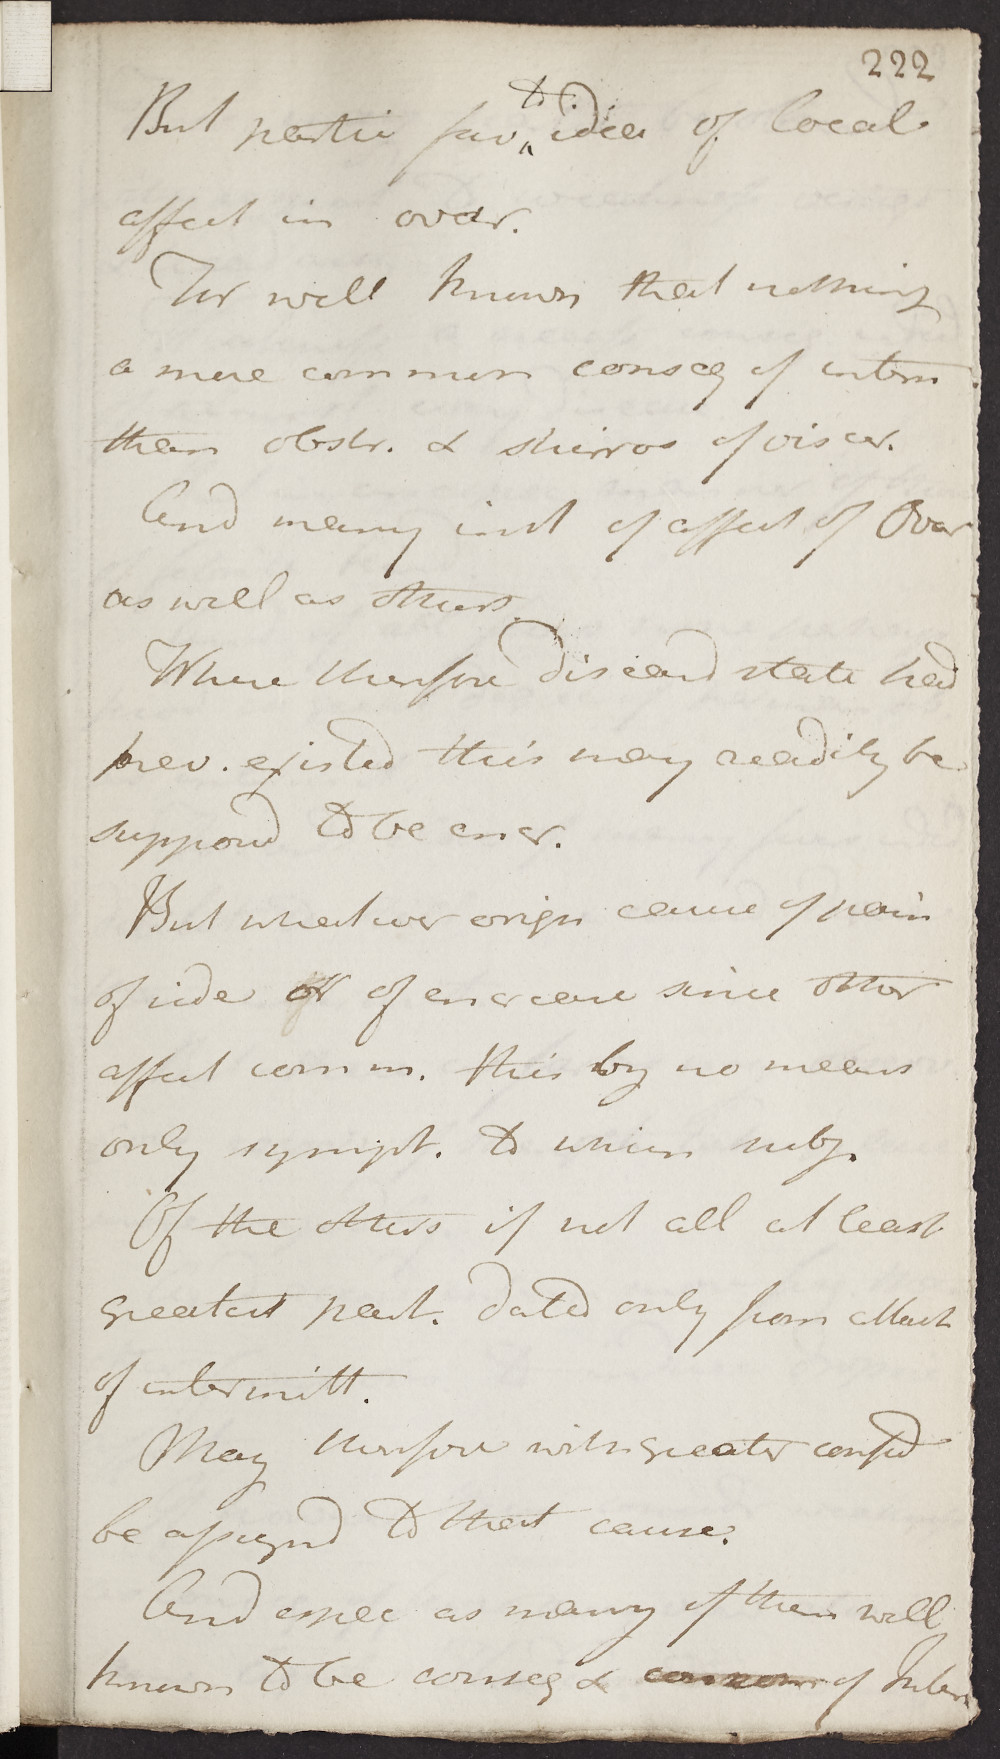 222
But partic fav to idea of local
affect in ovar.
For well known that nothing
a more common conseq of interm
then obstr. & skirros of viscer.
And many inst of affect of Ovar
as well as others.
Where therefore diseasd state had
prev. existed this may readily be
supposd to be encr.
But whatever origin cause of pain
of side or of encrease since other
affect comm. this by no means
only sympt. to which subj.
Of the others if not all at least
greatest part. dated only from attack
of intermitt.
May therefore with greater confid
be assignd to that cause.
And espec as many of them well
known to be conseq & of Interm